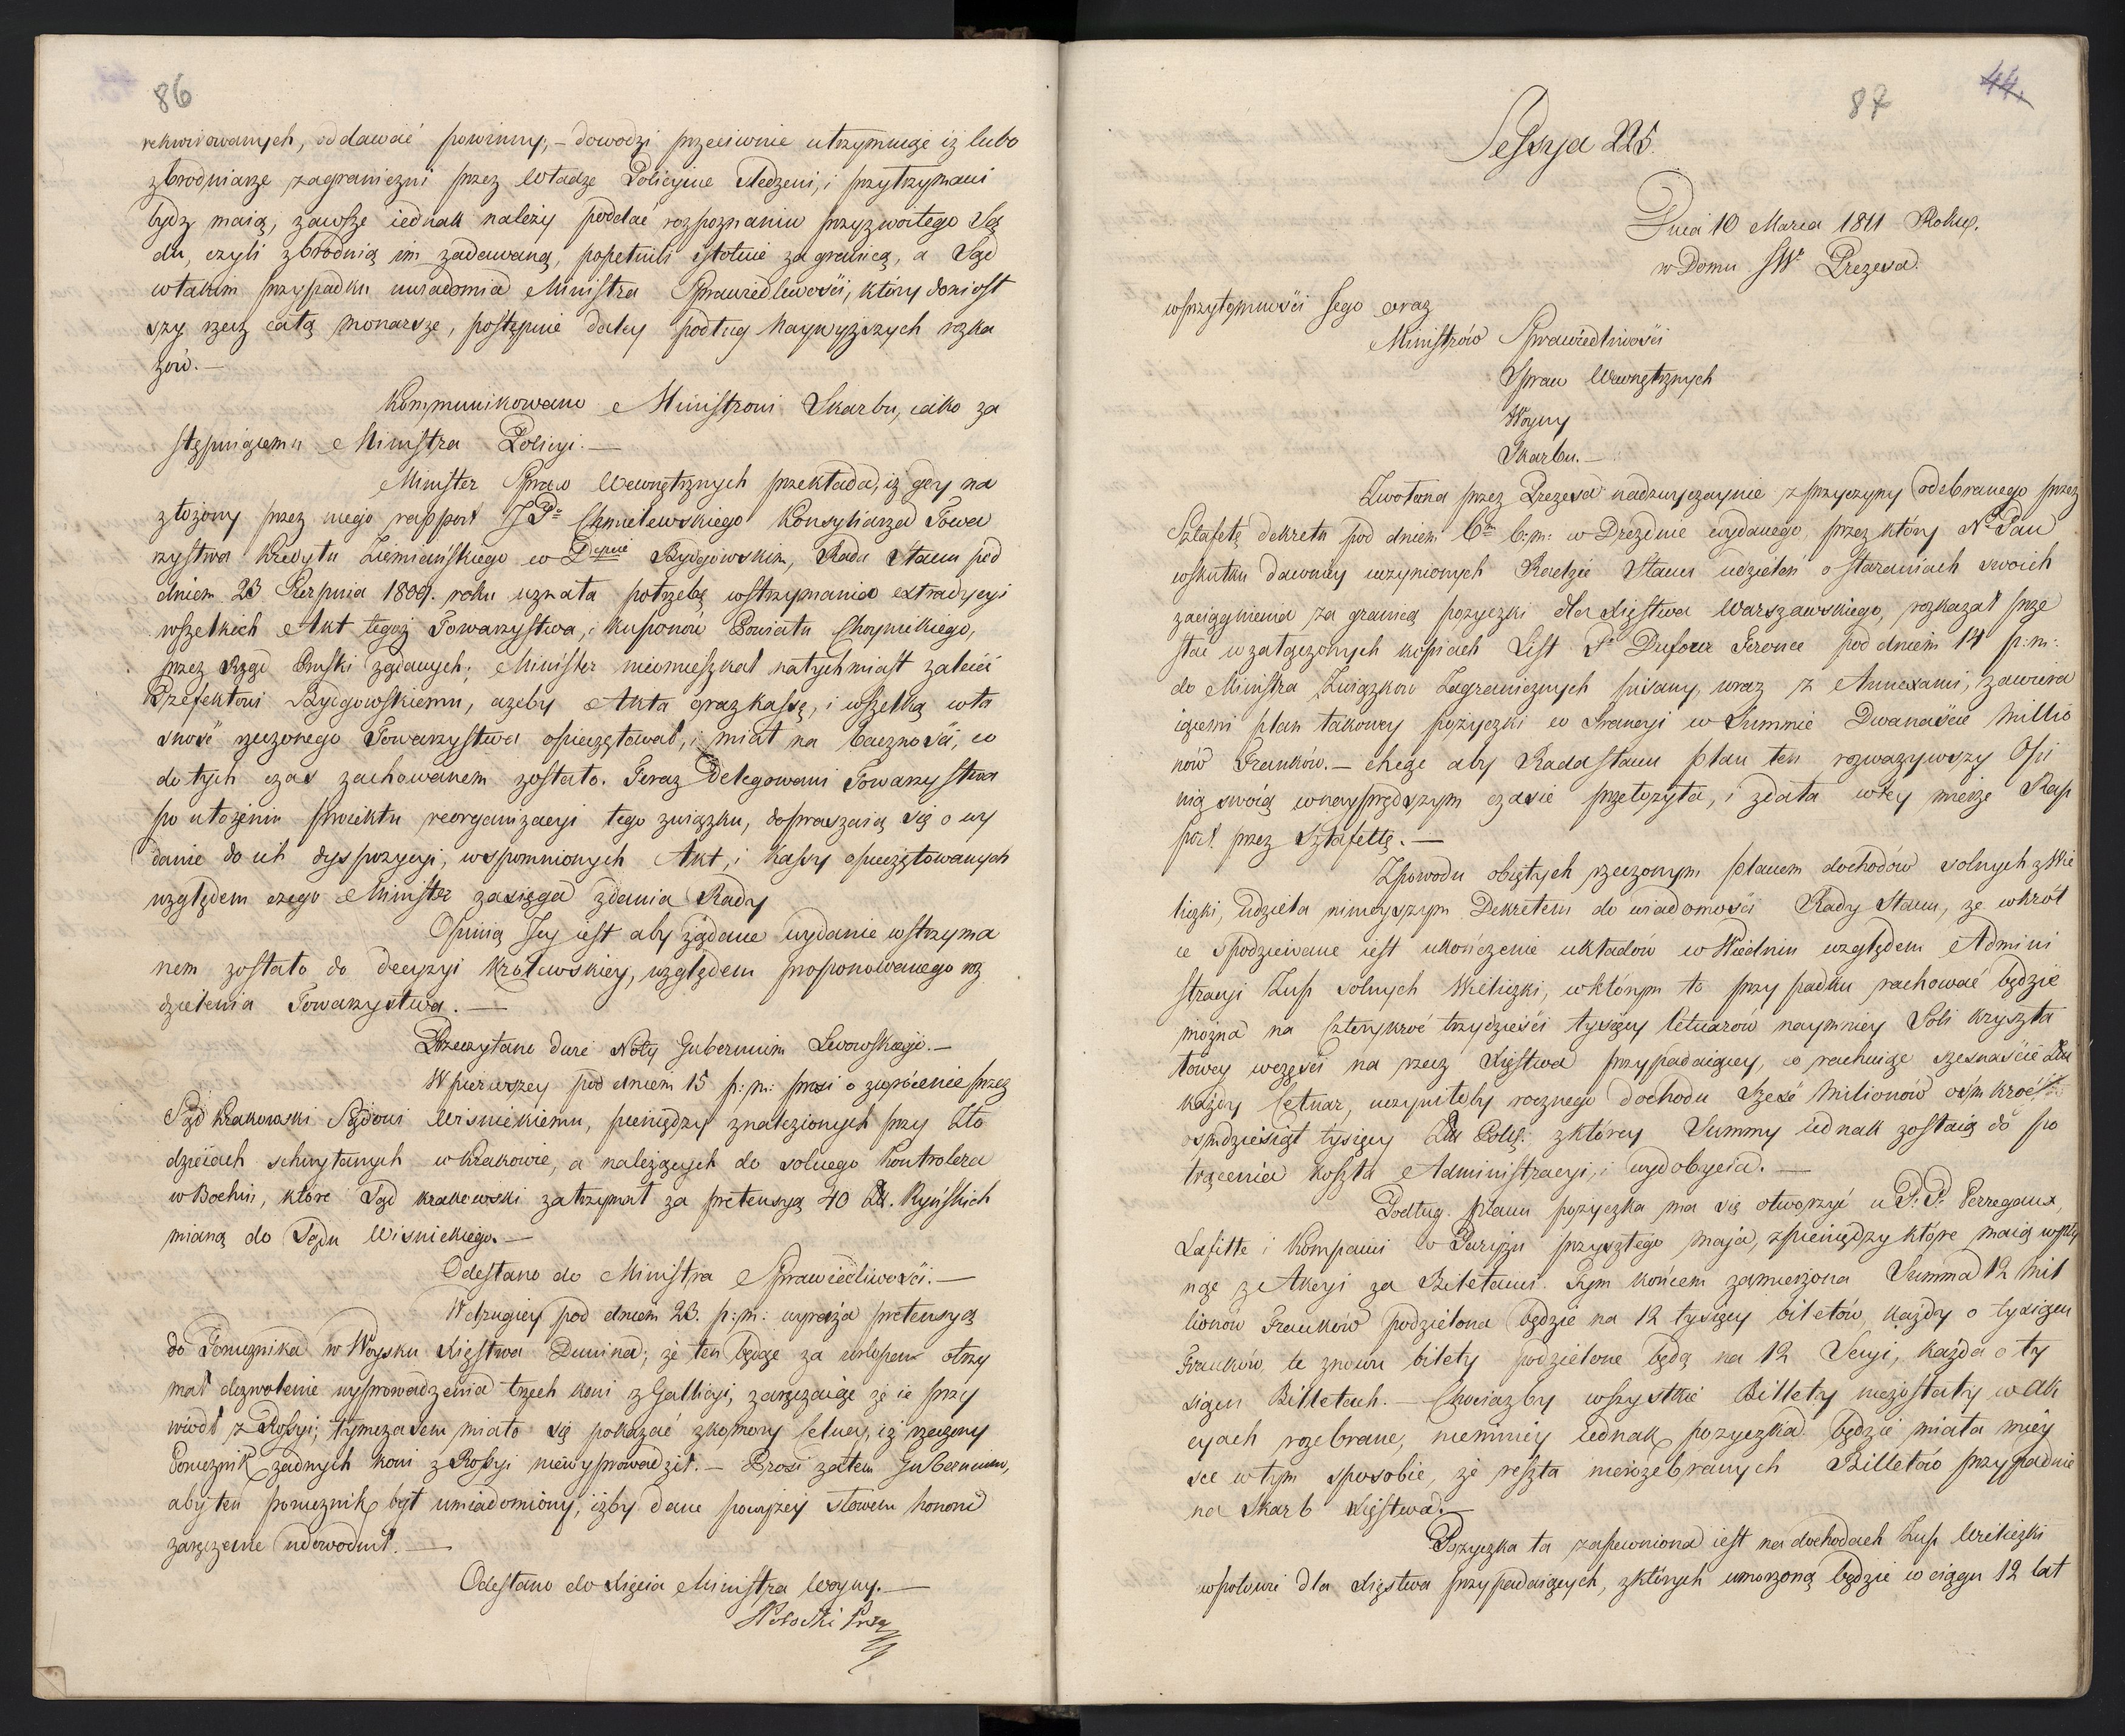 86
rekwirowanych, oddawać powinny, – dowodzi przeciwnie utrzymuiąc iż lubo
zbrodniarze zagraniczni przez Władze Policyine śledzeni, i przytrzymani
bydź maią, zawsze iednak należy poddać rozpoznaniu przyzwoitego Są
du, czyli zbrodnią im zadawaną, popełnili istotnie za granicą, a Sąd
w takim przypadku uwiadomia Ministra Sprawiedliwości, który doniósł
szy rzecz całą monarsze, postąpnie daley podług Naywyższych rozka
zów. –
Kommunikowano Ministrowi Skarbu, iako za
stępuiącemu Ministra Policyi. –
Minister Spraw Wewnętrznych przekłada, iż gdy na
złożony przez niego rapport JP Chmielewskiego Konsyliarza Towa
rzystwa Kredytu Ziemiańskiego w Depcie Bydgowskim, Rada Stanu pod
dniem 23 Sierpnia 1809. roku uznała potrzebę wstrzymania extradycyi
wszelkich Akt tegoż Towarzystwa, i kuponów Powiatu Choynickiego,
przez Rząd Pruski żądanych; Minister nieomieszkał natychmiast zalecić
Prefektowi Bydgowskiemu, ażeby Akta oraz kassę, i wszelką wła
sność rzeczonego Towarzystwa opieczętował, i miał na baczności, co
do tych czas zachowanem zostało. Teraz Delegowani Towarzystwa
po ułożeniu proiektu reorganizacyi tego związku, dopraszaią się o wy
danie do ich dyspozycyi, wspomnionych Akt, i kassy opieczętowanych
względem czego Minister zasięga zdania Rady
Opinią Jey iest aby żądane wydanie wstrzyma
nem zostało do decyzyi Królewskiey, względem proponowanego roz
dzielenia Towarzystwa. –
Przeczytano dwie Noty Gubernium Lwowskiego. –
W pierwszey pod dniem 15 p: m: prosi o zwrócenie przez
Sąd Krakowski Sądowi Wisnickiemu, pieniędzy znalezionych przy Zło
dzieiach schwytanych w Krakowie, a należących do solnego Kontrolera
w Bochni, które Sąd krakowski zatrzymał za pretensyą 40 Zł. Ryńskich
mianą do Sądu Wisnickiego. –
Odesłano do Ministra Sprawiedliwości. –
W drugiey pod dniem 23. p: m: wyraża pretensyą
do Porucznika w Woysku Xięstwa Dunina; że ten będąc za urlopem otrzy
mał dozwolenie wyprowadzenia trzech koni z Gallicyi, zaręczaiąc że ie przy
wiódł z Rossyi; tymczasem miało się pokazać z komory Celney, iż rzeczony
Porucznik żadnych koni z Rossyi niewyprowadził. – Prosi zatem Gubernium,
aby ten porucznik był uwiadomiony, iżby dane powyżey słowem honoru
zaręczenie udowodnił. –
Odesłano do Xięcia Ministra Woyny. –
Potocki Prez
87
44.
Sessya 225.
Dnia 10 Marca 1811 Roku.
w Domu JW Prezesa.
w przytomności Jego oraz
Ministrów Sprawiedliwości
Spraw Wewnętrznych
Woyny
Skarbu. –
Zwołana przez Prezesa nadzwyczaynie z przyczyny odebranego przez
Sztafetę dekretu pod dniem 6m b: m: w Dreznie wydanego, przez który N. Pan
w skutku dawniey uczynionych Radzie Stanu udzieleń o staraniach swoich
zaciągnienia za granicą pożyczki dla Xięstwa Warszawskiego, rozkazał prze
słać w załączonych kopiach List P. Dufour Feronce pod dniem 14 p: m:
do Ministra Związków Zagranicznych pisany, wraz z Annexami, zawiera
iącemi plan takowey pożyczki w Francyi w Summie Dwanaście millio
nów Franków. – chcąc aby Rada Stanu plan ten rozważywszy Opi
nią swoią w nayprędszym czasie przełożyła, i zdała w tey mierze Rap
port przez Sztafettę. –
Z powodu obiętych rzeczonym planem dochodów solnych z Wie
liczki, udziela ninieyszym Dekretem do wiadomości Rady Stanu, że wkrót
ce spodziewane iest ukończenie układów w Wiedniu względem Admini
stracyi Żup solnych Wieliczki, w którym to przypadku rachować będzie
można na Czterykroć trzydzieści tysięcy Cetnarów naymniey Soli kryszta
łowey w części na rzecz Xięstwa przypadaiącey, co rachuiąc szesnaście Zł
każdy Cetnar, uczyniłoby rocznego dochodu Sześć Milionów ośmkroć
ośmdziesiąt tysięcy Zł Pols: z którey Summy iednak zostaią do po
trącenia koszta Administracyi, i wydobycia. –
Podług planu pożyczka ma się otworzyć u P. P. Perregaux,
Lafitte i Kompanii w Paryżu przyszłego maja, z pieniędzy które maią wpły
nąć z Akcyi za Biletami. Tym końcem zamierzona Summa 12 Mil
lionów Franków podzielona będzie na 12 tysięcy biletów, każdy o tysiącu
Franków, te znowu bilety podzielone będą na 12 Seryi, każda o ty
siącu Billetach. – Chociażby wszystkie Billety niezostały w ak
cyach rozebrane, niemniey iednak pożyczka będzie miała miey
sce w tym sposobie, że reszta nierozebranych Billetów przypadnie
na Skarb Xięstwa. –
Pożyczka ta zapewniona iest na dochodach Żup Wieliczki
w połowie dla Xięstwa przypadaiących, z których umorzoną będzie w ciągu 12 lat